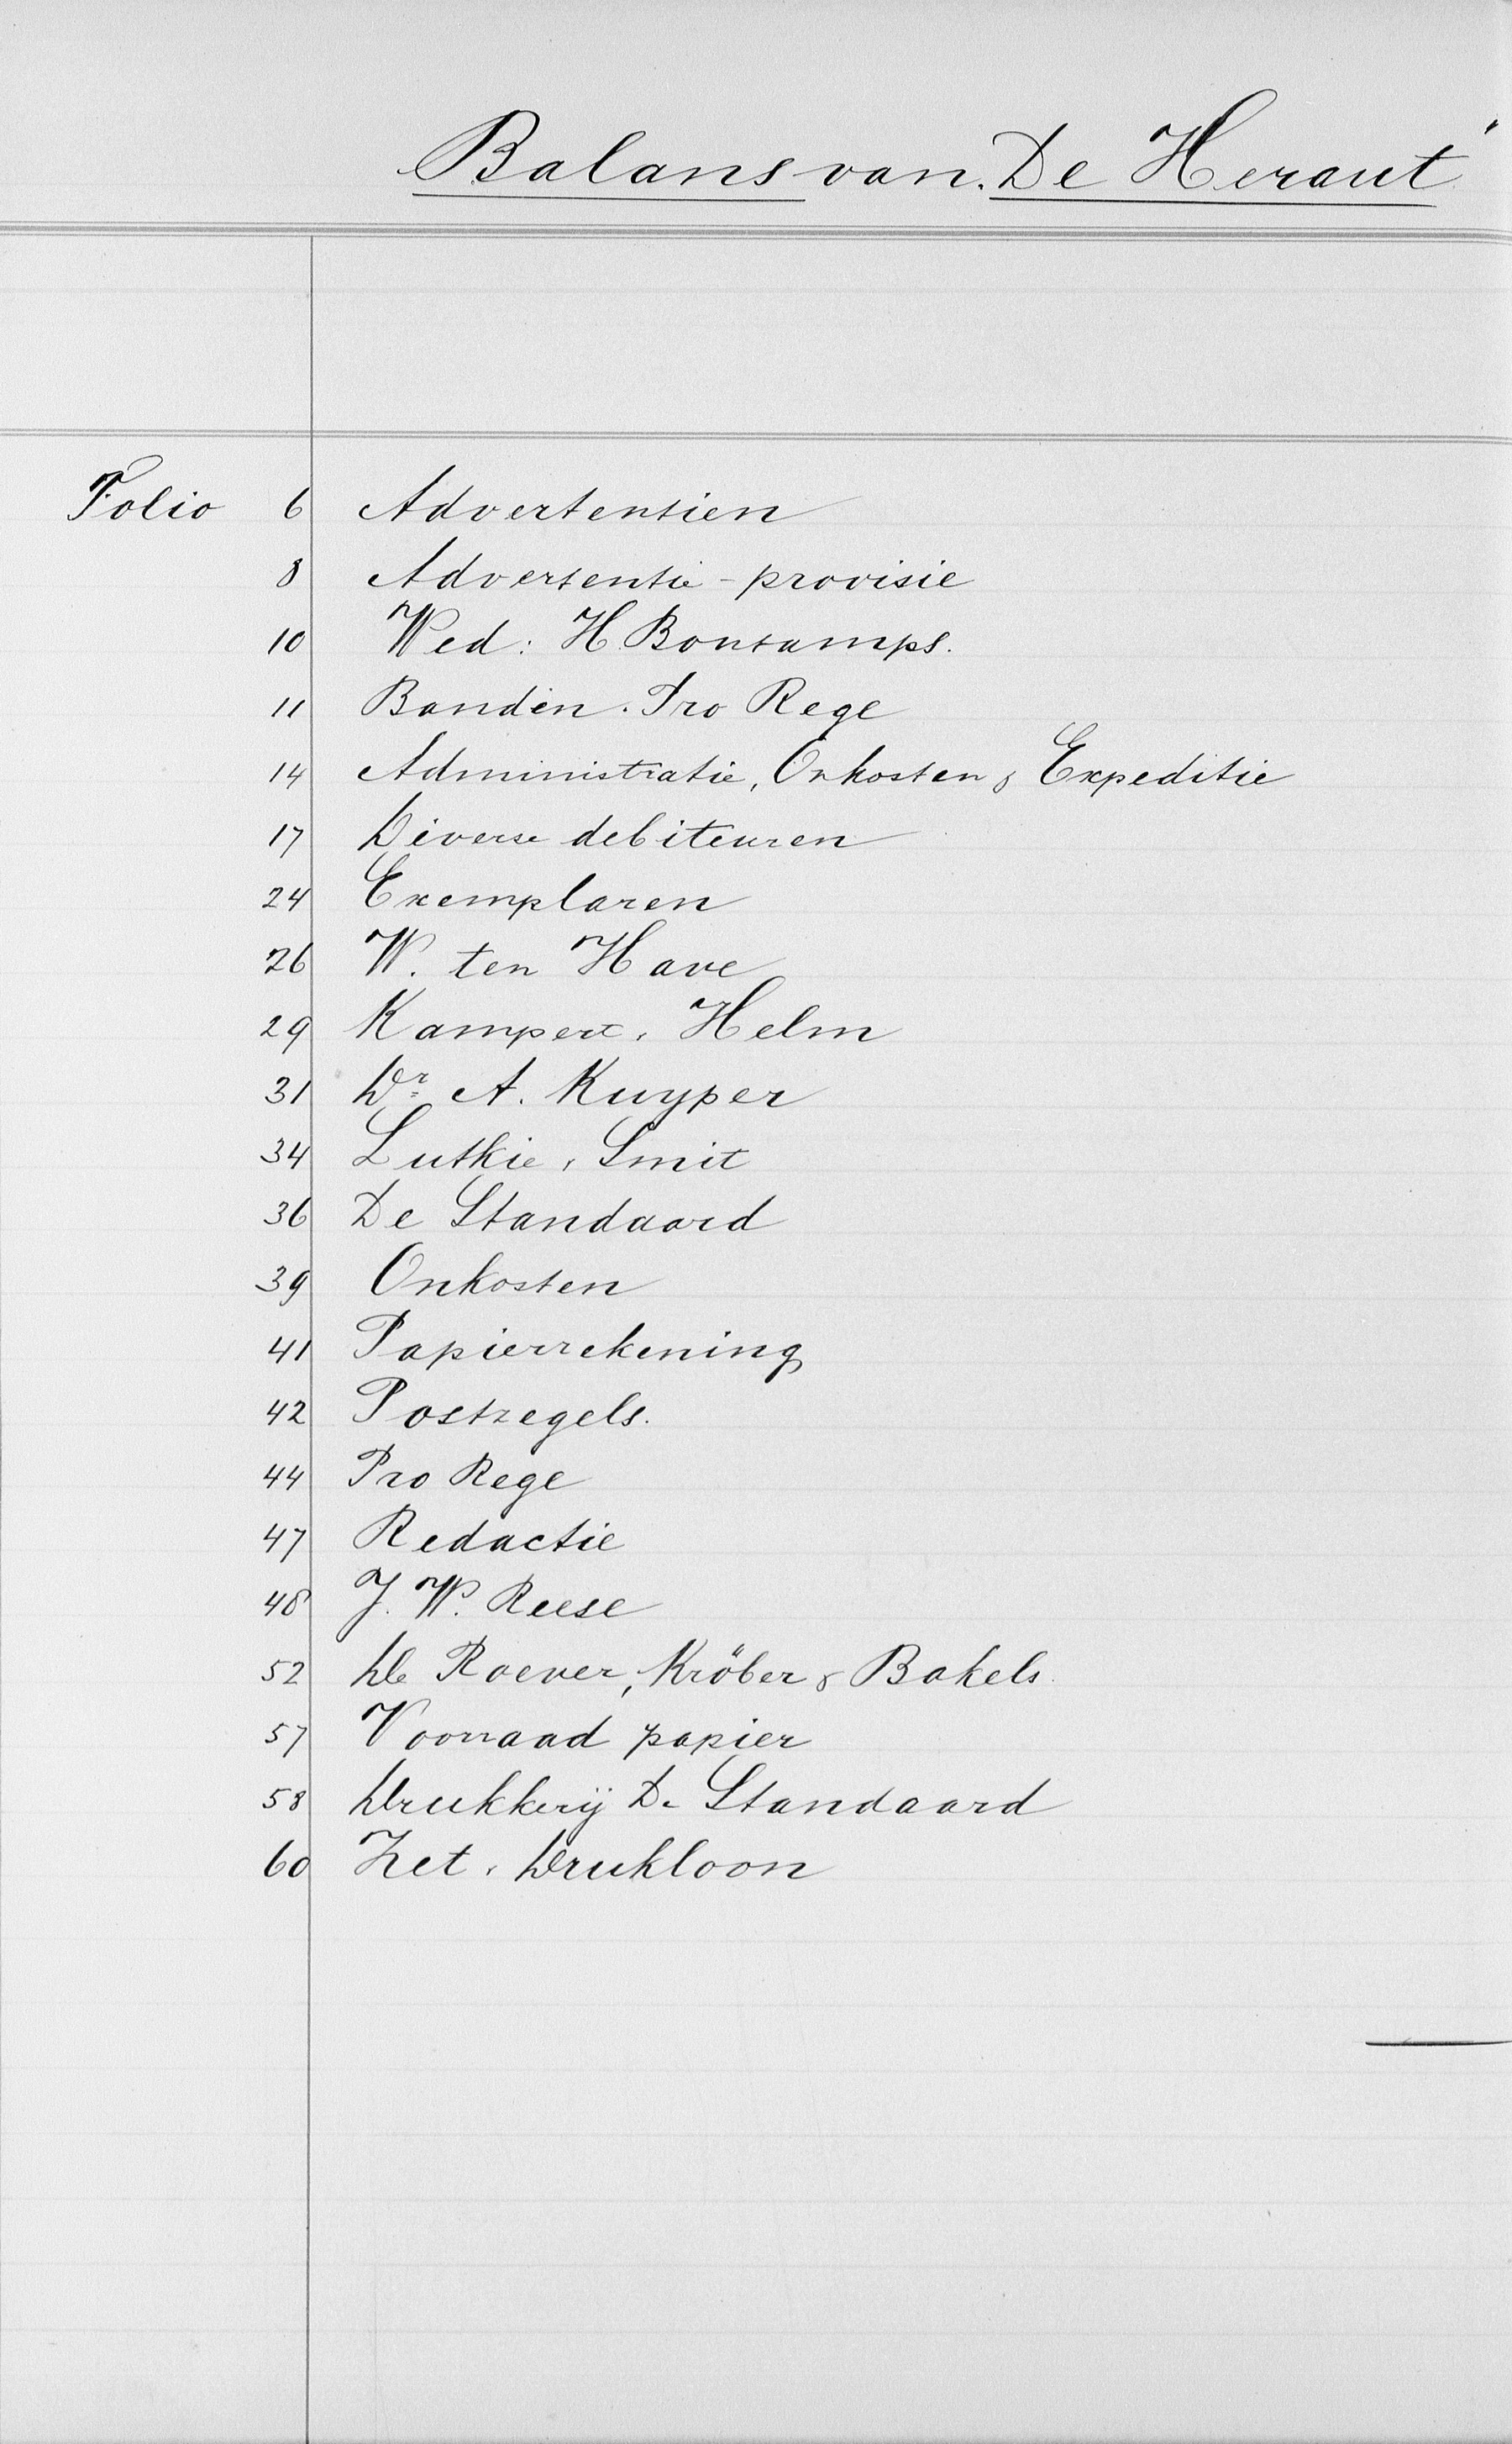 Balans van „De Heraut"
Folio 6 Advertentien
8 Advertentie-provisie
10 Wed: H. Bontamps.
11 Banden „Pro Rege
14 Administratie, Onkosten & Expeditie
17 Diverse debiteuren
24 Exemplaren
26 W. ten Have
29 Kampert & Helm
31 Dr. A. Kuyper
34 Lutkie & Smit
36 De Standaard
39 Onkosten
41 Papierrekening
42 Postzegels.
44 Pro Rege
47 Redactie
48 J. W. Reese
52 De Roever, Kröber & Bakels.
57 Voorraad papier
58 Drukkerij De Standaard
60 Zet & Drukloon